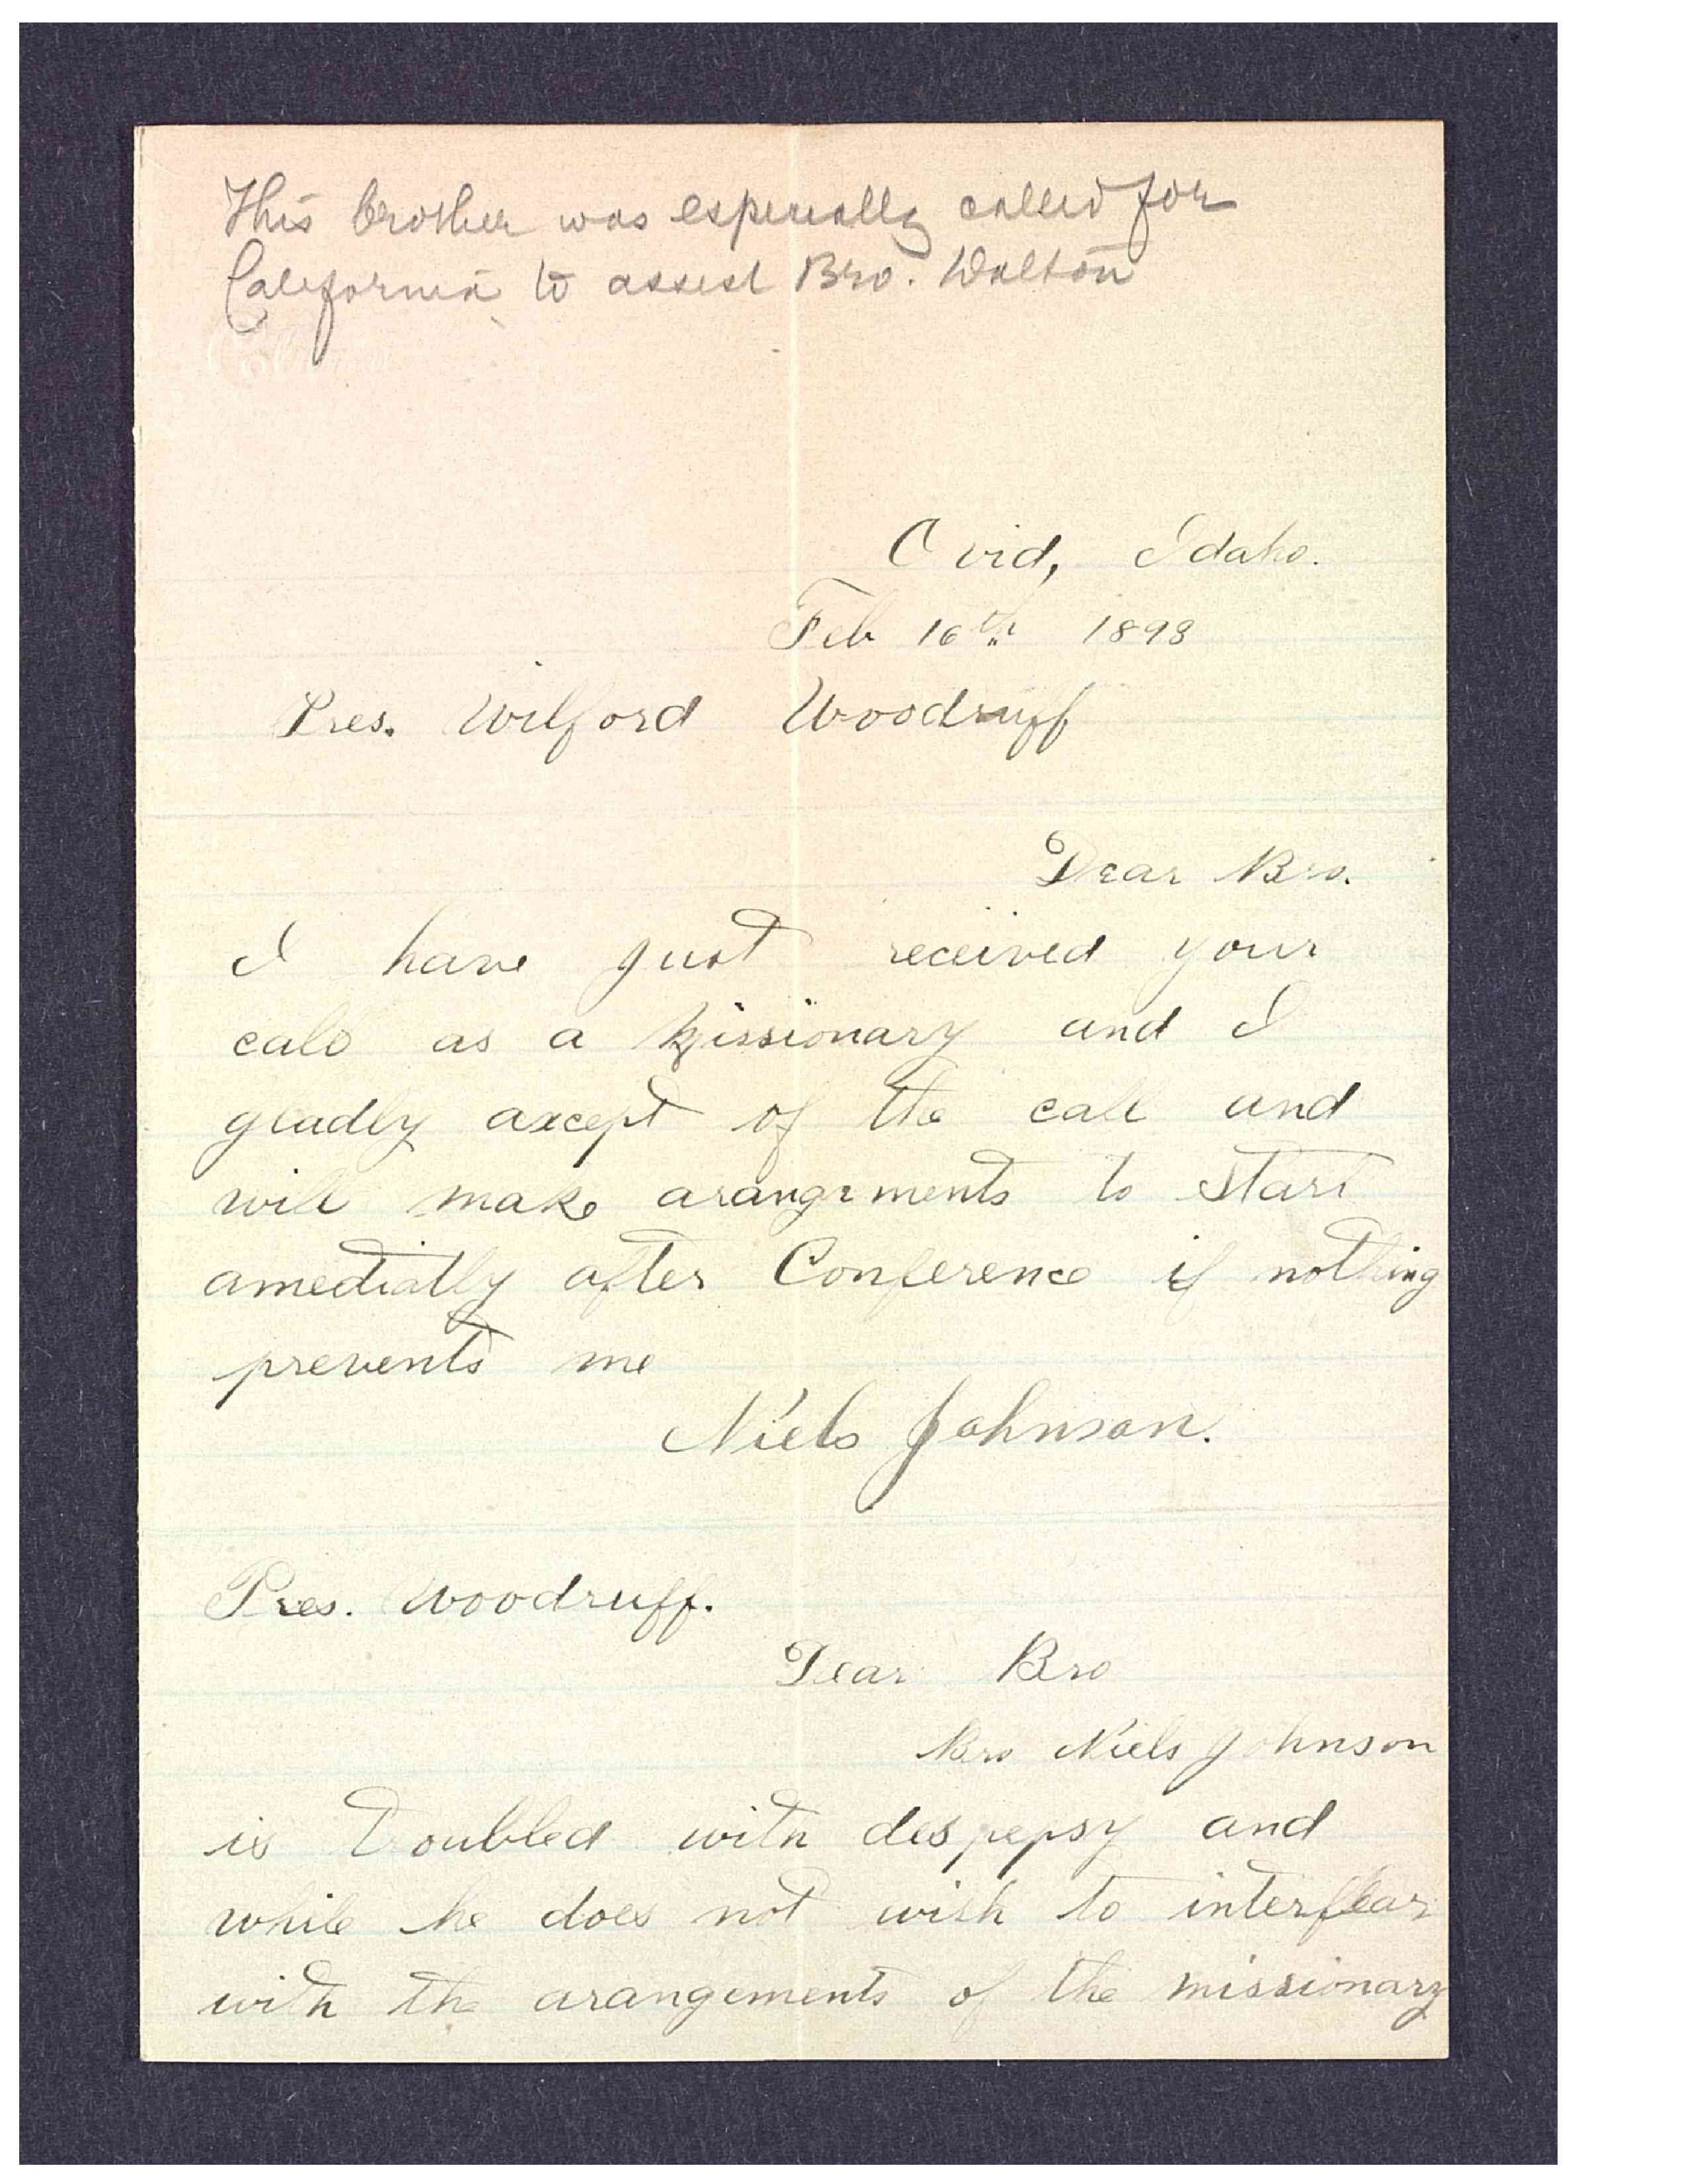 This brother was especially called for
California to assist Bro. Dalton
Ovid, Idaho.
Feb 16th 1893
Pres. Wilford Woodruff
Dear Bro.
I have just received your
call as a missionary and I
gladly axcept of the call and
will make arangements to start
amediatly after Conference if nothing
prevents me
Niels Johnson.
Pres. Woodruff.
Dear Bro
Bro Niels Johnson
is troubled with despepsy and
while he does not wish to interfear
with the arangements of the missionary